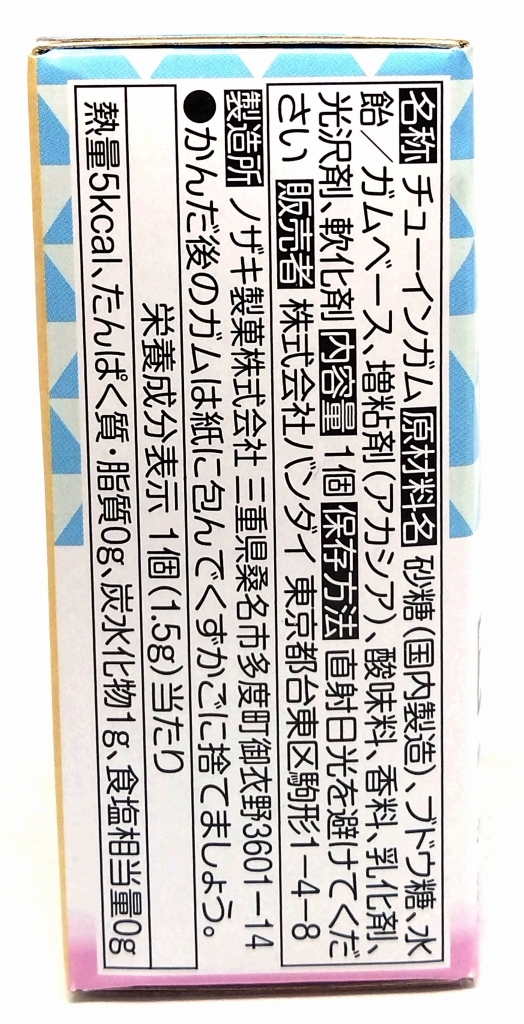 名称 チューインガム 原材料名 砂糖(国内製造)、ブドウ糖、水
飴/ガムベース、増粘剤(アカシア)、酸味料、香料、乳化剤、
光沢剤、軟化剤 内容量 1個 保存方法 直射日光を避けてくだ
さい 販売者 株式会社バンダイ 東京都台東区駒形1-4-8
製造所 ノザキ製菓株式会社 三重県桑名市多度町御衣野3601-14
●かんだ後のガムは紙に包んでくずかごに捨てましょう。
栄養成分表示 1個(1.5g)当たり
熱量5kcal、たんぱく質・脂質0g、炭水化物1g、食塩相当量0g